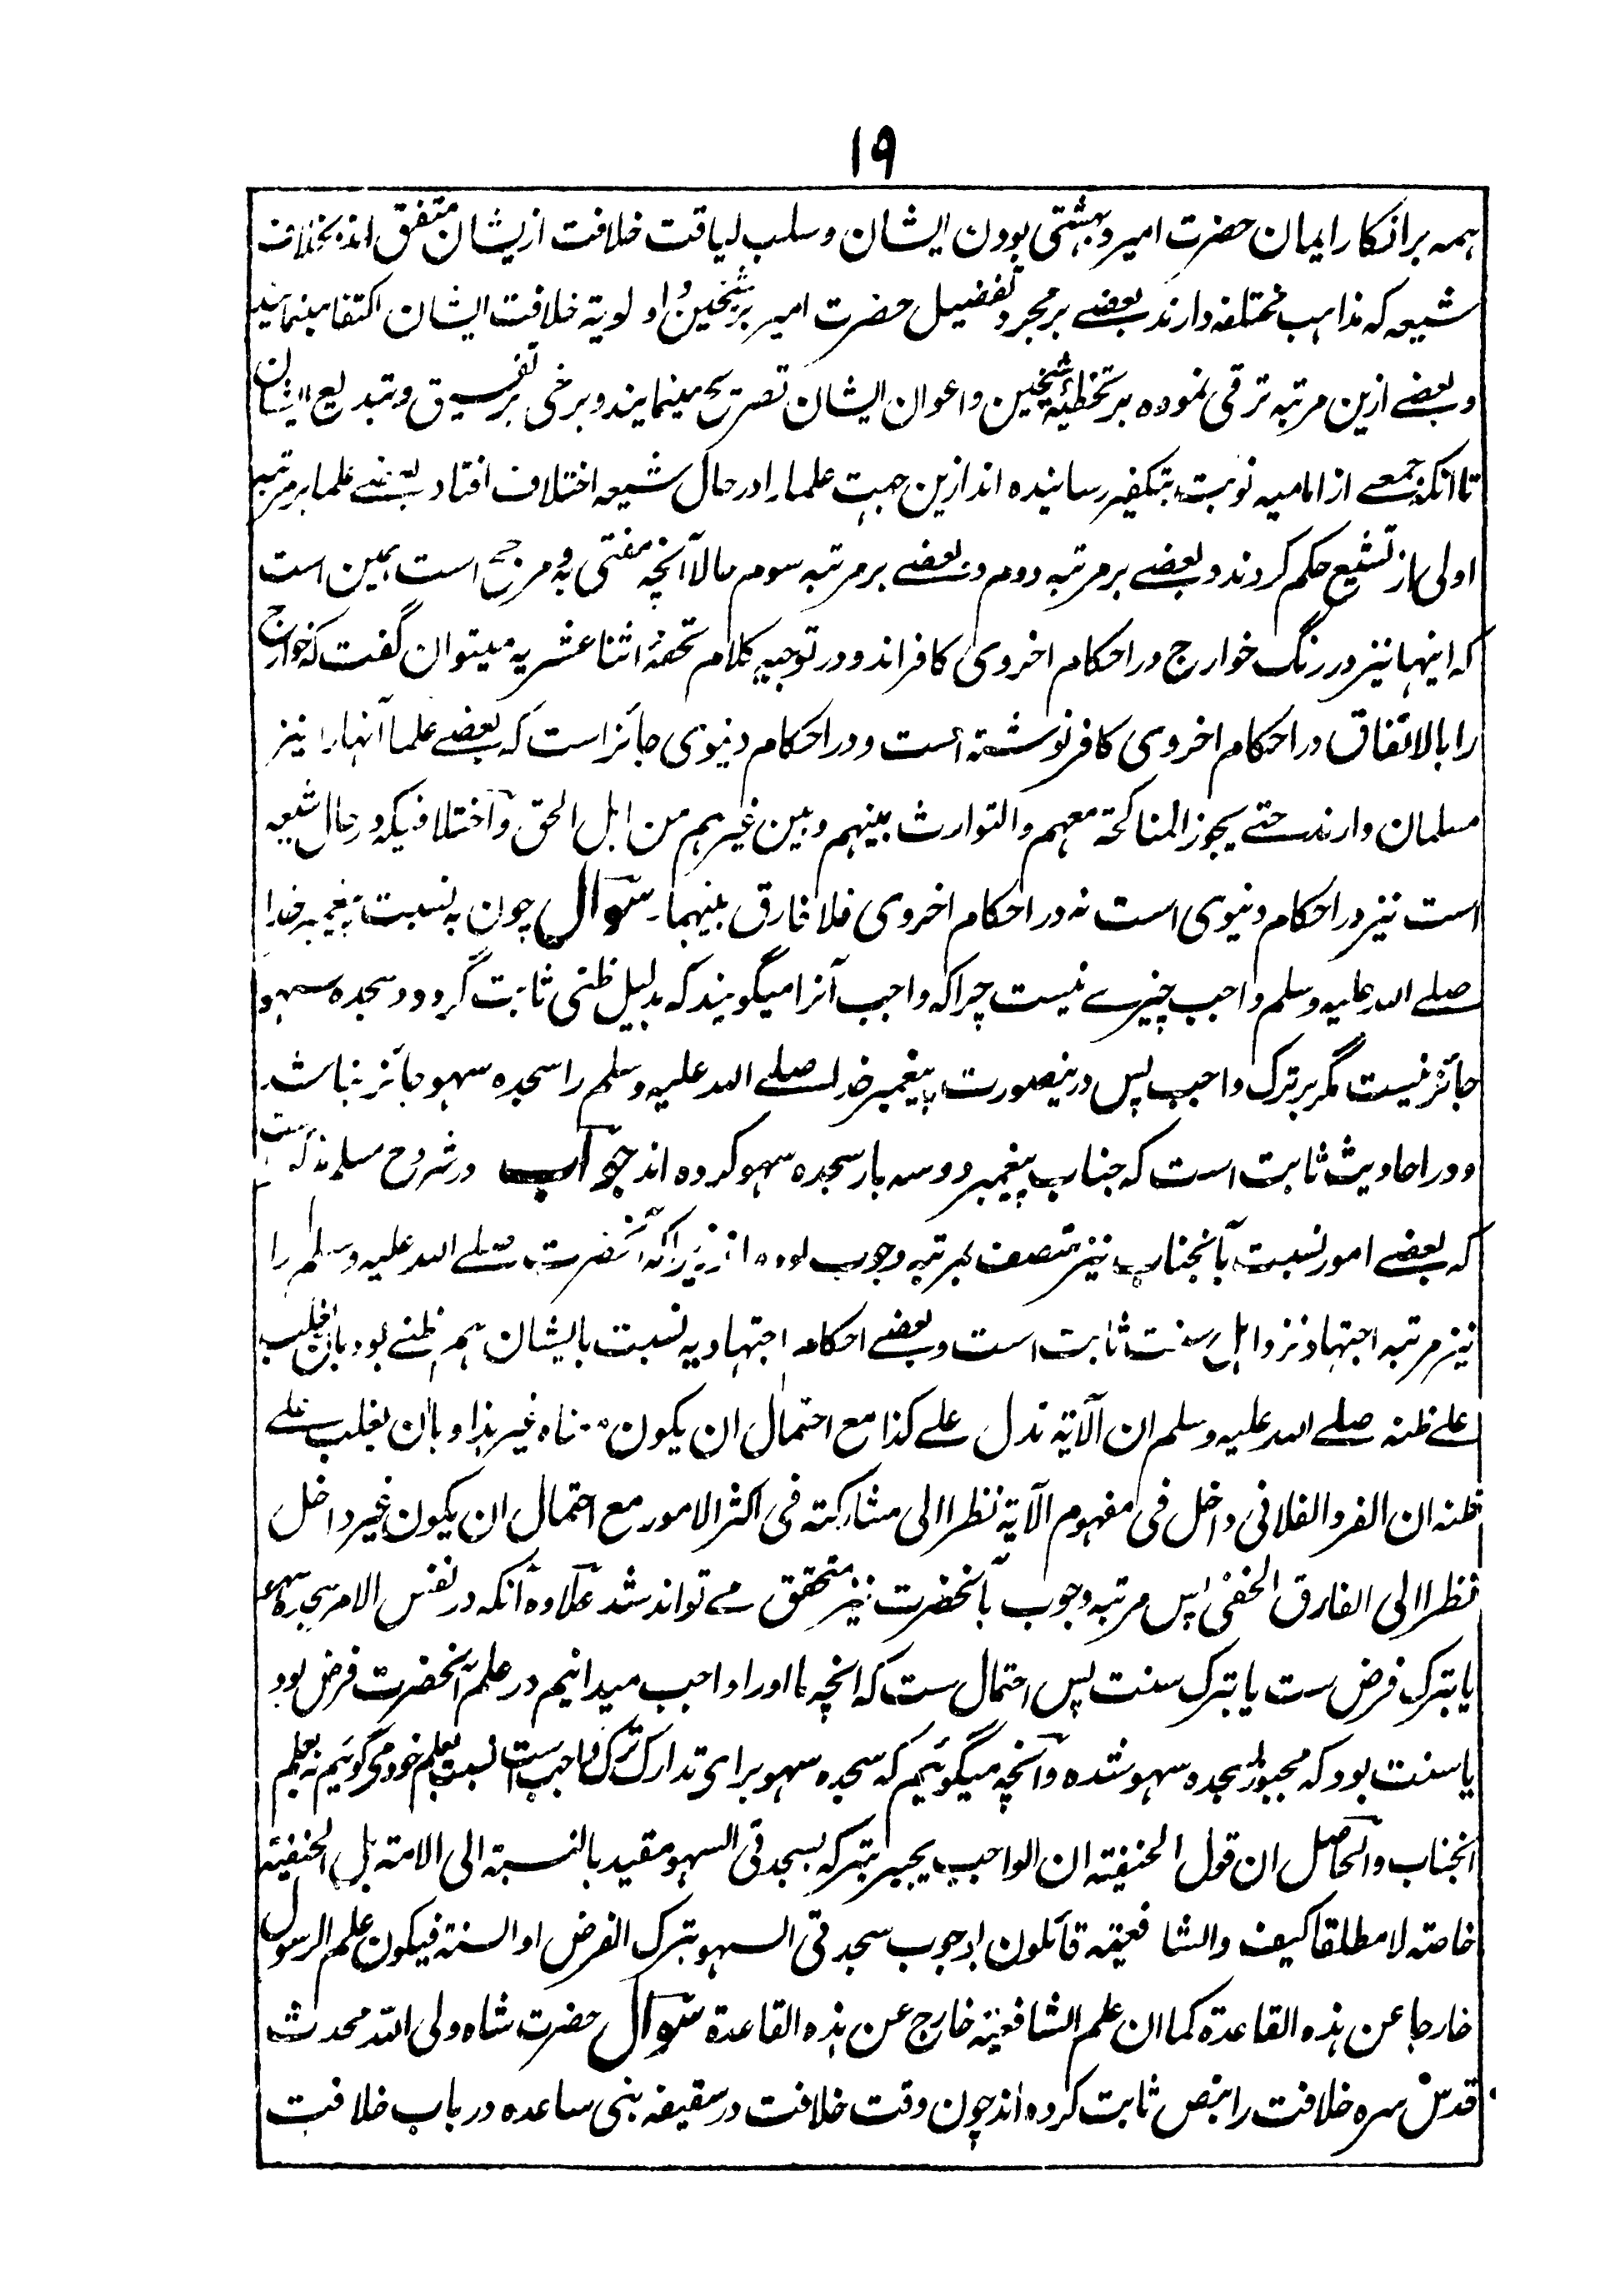 ۱۹
همه بر انکار ایمان حضرت امیر و بهشتی بودن ایشان و سلب لیاقت خلافت ازیشان متفق اند بخلاف
شیعه که مذاهب مختلفه دارند بعضے بر مجرد تفضیل حضرت امیر بر شیخین و اولویة خلافت ایشان اکتفا مینمایند
و بعضے ازین مرتبه ترقی نموده بر تخطیهٔ شیخین و اعوان ایشان تصریح مینمایند و برخی بر تفسیق و تبدیع ایشان
تا آنکه جمعے از امامیه نوبت بتکفیر رسانیده اند ازین جهت علما را در حال شیعه اختلاف افتاد بعضے علما بر مرتبه
اولی از تشیع حکم کردند و بعضے بر مرتبه دوم و بعضے بر مرتبه سوم مالا آنچه مفتی به و مرجح است همین است
که اینها نیز در رنگ خوارج در احکام اخروی کافر اند و در توجیه کلام تحفهٔ اثنا عشریه میتوان گفت که خوارج
را بالاتفاق در احکام اخروی کافر نوشته است و در احکام دنیوی جائز است که بعضے علما آنها را نیز
مسلمان دارند حتے یجوز المناکحة معهم و التوارث بینهم و بین غیرهم من اهل الحق و اختلافیکه در حال شیعه
است نیز در احکام دنیوی است نه در احکام اخروی فلا فارق بینهما سوال چون به نسبت پیغمبر خدا
صلے الله علیه و سلم واجب چیزے نیست چرا که واجب آنرا میگویند که بدلیل ظنی ثابت گردد و سجده سهو
جائز نیست مگر بر ترک واجب پس درینصورت پیغمبر خدا صلے الله علیه و سلم را سجده سهو جائز نباشد
و در احادیث ثابت است که جناب پیغمبر دو سه بار سجده سهو کرده اند جواب در شروح مسلم مذکورست
که بعضے امور نسبت بآنجناب نیز متصف بمرتبه وجوب بوده اند زیرا که آنحضرت صلے الله علیه و سلم را
نیز مرتبه اجتهاد نزد اهل سنت ثابت است و بعضے احکام اجتهادیه نسبت بایشان هم ظنے بود بان یغلب
علے ظنه صلے الله علیه و سلم ان الآیة تدل علے کذا مع احتمال ان یکون معناه غیر هذا و بان یغلب علے
ظنه ان الفرد الفلانی داخل فی مفهوم الآیة نظرا الی مشارکته فی اکثر الامور مع احتمال ان یکون غیر داخل
نظرا الی الفارق الخفی پس مرتبه وجوب بآنحضرت نیز متحقق مے تواند شد علاوه آنکه در نفس الامر سجده سهو
یا بترک فرض ست یا بترک سنت پس احتمال ست که آنچه ما او را واجب میدانیم در علم آنحضرت فرض بود
یا سنت بود که مجبور بسجده سهو شده و آنچه میگوئیم که سجده سهو برای تدارک ترک واجب است نسبت بعلم خود میگوئیم نه بعلم
آنجناب و الحاصل ان قول الحنیفته ان الواجب یجبر بترکه بسجدتی السهو مقید بالنسبة الی الامته بل الحنفیته
خاصته لا مطلقا کیف و الشافعیته قائلون بوجوب سجدتی السهو بترک الفرض او السنته فیکون علم الرسول
خارجا عن هذه القاعدة کما ان علم الشافعیته خارج عن هذه القاعدة سوال حضرت شاه ولی الله محدث
قدس سره خلافت را بنص ثابت کرده اند چون وقت خلافت در سقیفه بنی ساعده در باب خلافت